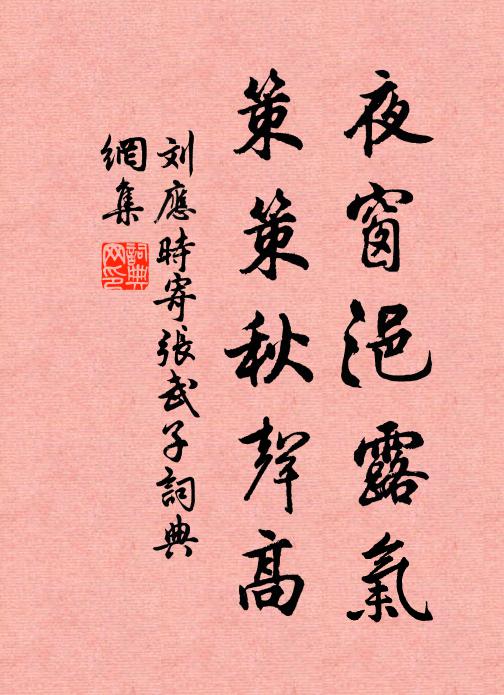 夜窗浥露氣
策策秋聲高
刘應時寄張武子詞典
網集
詞典网印